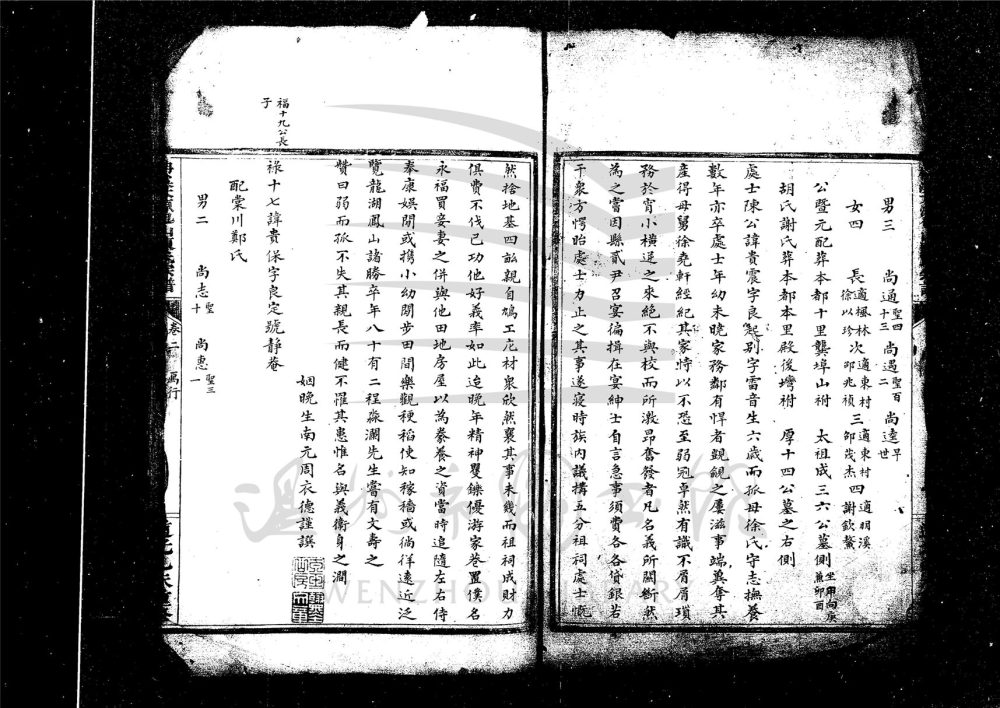 男三　尚通聖四十三　尚遇聖百二　尚逵早世
女四　長適楓林徐以珍　次適東村邵兆禎　三適東村邵茂杰　四適明溪謝欽鰲
公暨元配葬本都十里龔埠山祔　太祖成三六公墓側坐甲向庚兼卯酉
胡氏謝氏葬本都本里殿後塆祔　厚十四公墓之右側
處士陳公諱貴震字良起別字雷音生六歲而孤母徐氏守志撫養
數年亦卒處士年幼未曉家務鄰有悍者覬覦之屢滋事端冀奪其
產得母舅徐堯軒經紀其家恃以不恐至弱冠卓然有識不屑屑瑣
務於宵小橫逆之來絕不與校而所激昂奮發者凡名義所關斷然
為之嘗因縣貳尹召宴徧揖在宴紳士自言急事須費各各貸銀若
干衆方愕眙處士力止之其事遂寢時族內議構五分祖祠處士慨
然捨地基四畝親自鳩工庀材衆欣然襄其事未幾而祖祠成財力
俱費不伐己功他好義率如此迨晚年精神矍鑠優游家巷置僕名
永福買妾妻之併與他田地房屋以為養養之資當時追隨左右侍
奉康娛閒或携小幼閒步田間樂觀稉稻使知稼穡或徜徉遠近泛
覽龍湖鳳山諸勝卒年八十有二程淼瀾先生嘗有文壽之
贊曰弱而孤不失其親長而健不罹其患惟名與義衞身之澗
姻晚生南元周衣德謹譔
福十九公長子
祿十七諱貴保字良定號靜菴
配棠川鄭氏
男二　尚志聖十　尚惠聖三一
卷二
萬行
WENZHOU LIBRARY